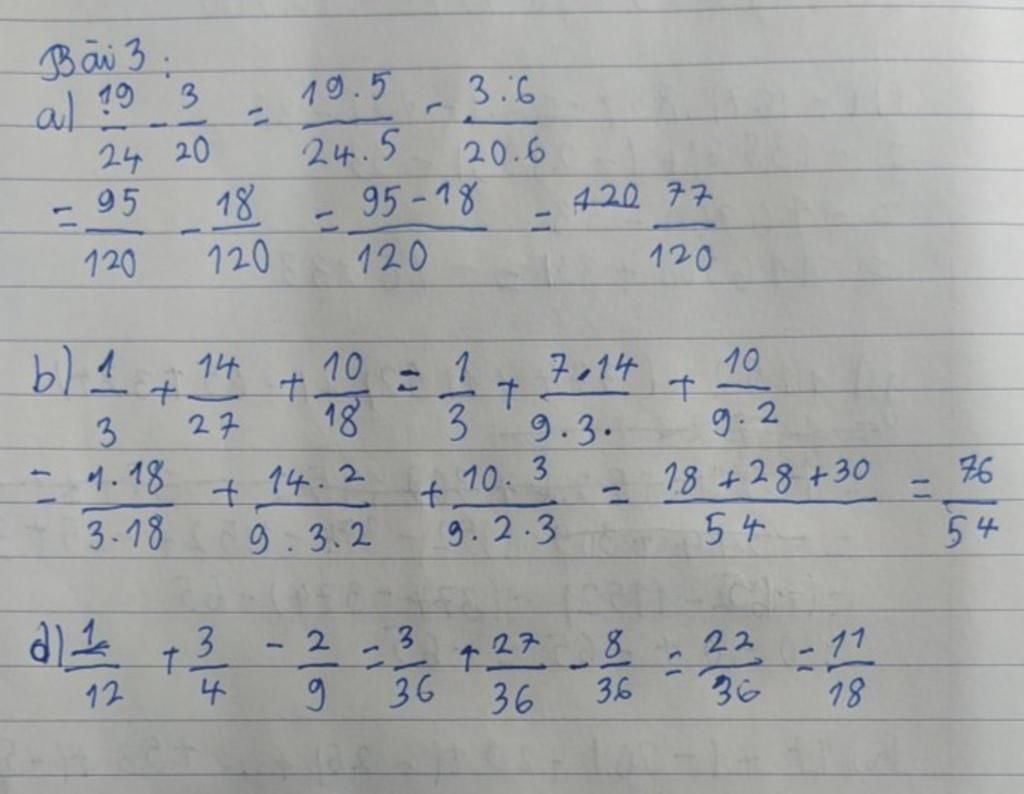 Bài 3:
a) 19/24 - 3/20 = 19.5/24.5 - 3.6/20.6
= 95/120 - 18/120 = 95-18/120 = 120 77/120
b) 1/3 + 14/27 + 10/18 = 1/3 + 7.14/9.3. + 10/9.2
= 1.18/3.18 + 14.2/9.3.2 + 10.3/9.2.3 = 18+28+30/54 = 76/54
d) 1/12 + 3/4 - 2/9 = 3/36 + 27/36 - 8/36 = 22/36 = 11/18